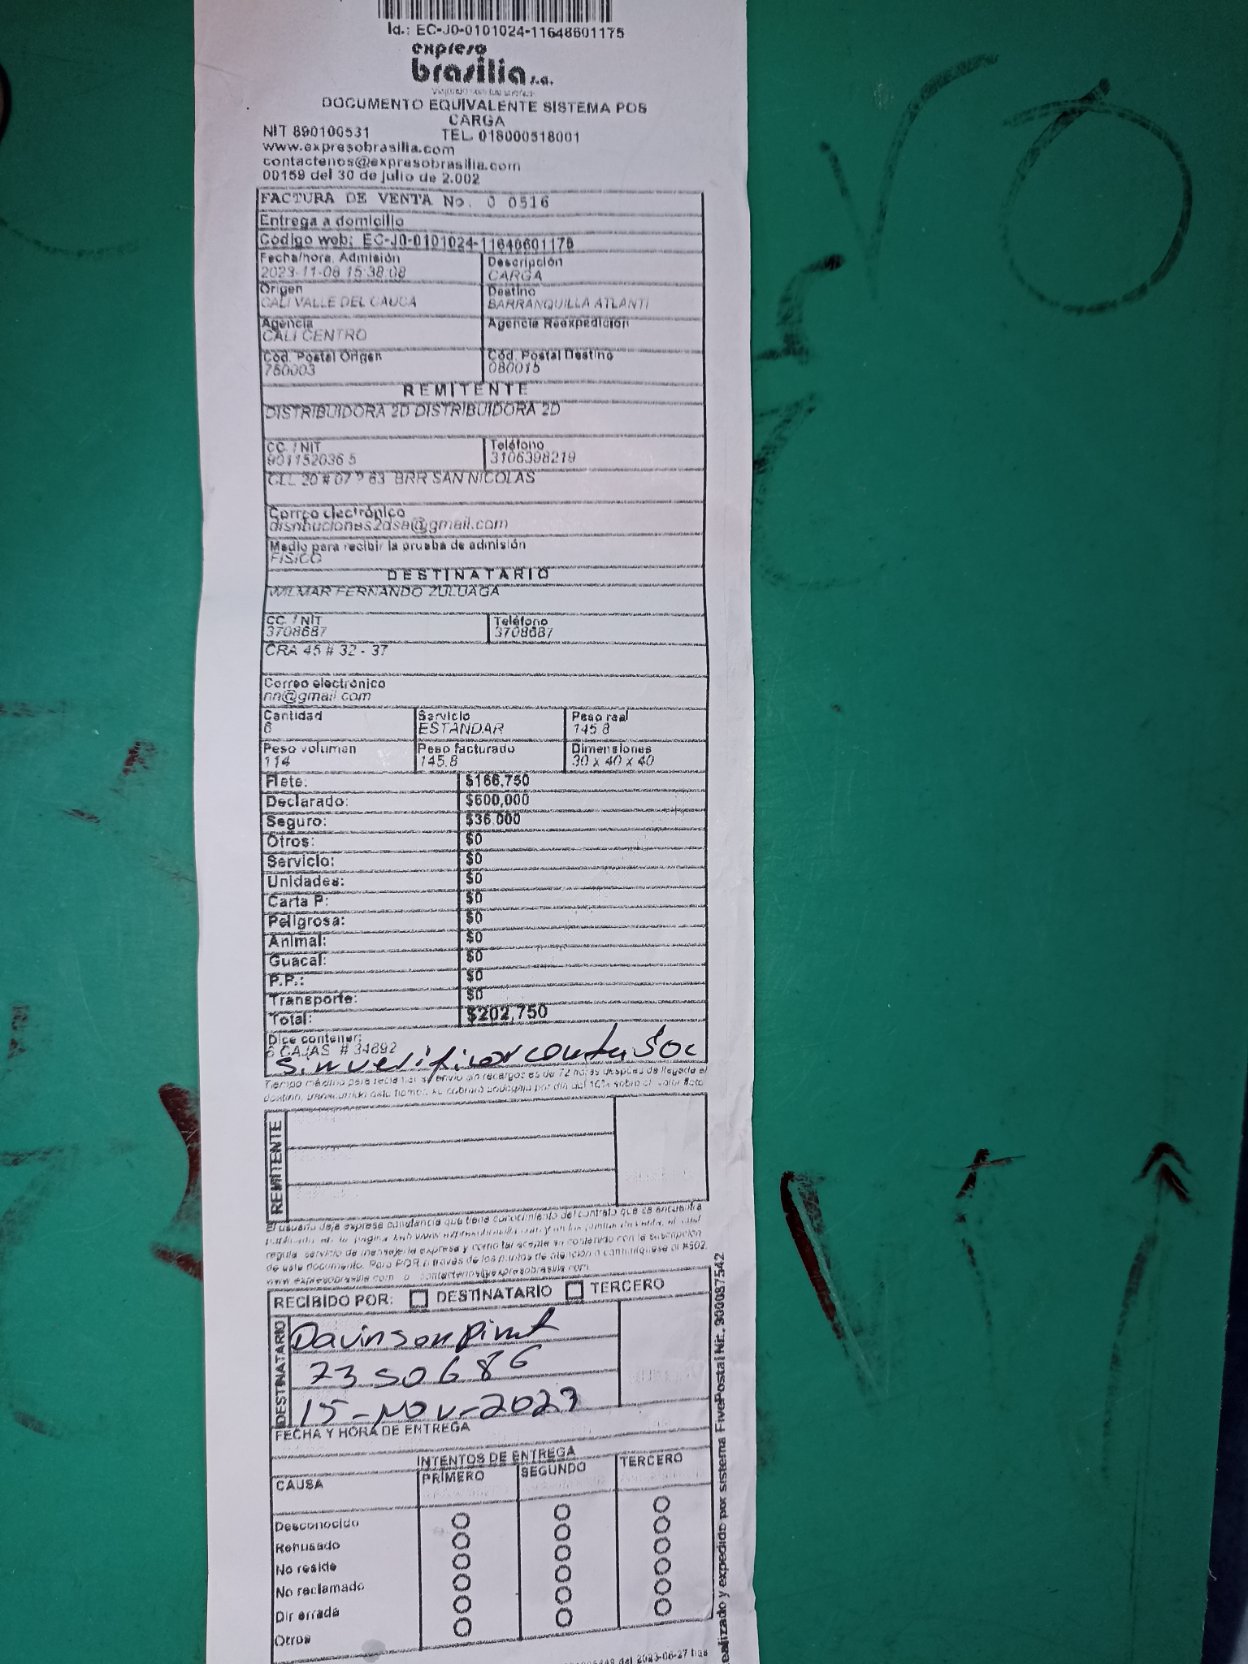 Id.: EC-J0-0101024-11648601175
expreso
brasilia s.a.
DOCUMENTO EQUIVALENTE SISTEMA POS
CARGA
NIT 890100531 TEL. 018000518001
www.expresobrasilia.com
contactenos@expresobrasilia.com
00159 del 30 de julio de 2.002
FACTURA DE VENTA No. 0 0516
Entrega a domicilio
Código web: EC-J0-0101024-11648601175
Fecha/hora. Admisión Descripción
2023-11-08 15:38:08 CARGA
Origen Destino
CALI VALLE DEL CAUCA BARRANQUILLA ATLANTI
Agencia Agencia Reexpedición
CALI CENTRO
Cód. Postal Origen Cód. Postal Destino
760003 080015
REMITENTE
DISTRIBUIDORA 2D DISTRIBUIDORA 2D
CC. / NIT Teléfono
901152036 5 3106398219
CLL 20 # 07 ? 63 BRR SAN NICOLAS
Correo electrónico
disnbuciones2dsa@gmail.com
Medio para recibir la prueba de admisión
FISICO
DESTINATARIO
WILMAR FERNANDO ZULUAGA
CC. / NIT Teléfono
3708687 3708687
CRA 45 # 32 - 37
Correo electrónico
nn@gmail.com
Cantidad Servicio Peso real
6 ESTANDAR 145.8
Peso volumen Peso facturado Dimensiones
114 145.8 30 x 40 x 40
Flete: $166,750
Declarado: $600,000
Seguro: $36,000
Otros: $0
Servicio: $0
Unidades: $0
Carta P: $0
Peligrosa: $0
Animal: $0
Guacal: $0
P.P.: $0
Transporte: $0
Total: $202,750
Dice contener:
6 CAJAS # 34892
sin verificar
Tiempo máximo para reclamar su envío sin recargos es de 72 horas después de llegada al
REMITENTE
El usuario deja expresa constancia que tiene conocimiento del contrato que se encuentra
regula servicio de mensajería expresa y como tal acepta su contenido con la suscripción
de este documento. Para PQR a través de los puntos de atención o comuníquese al #502
www.expresobrasilia.com o contactenos@expresobrasilia.com
RECIBIDO POR: DESTINATARIO TERCERO
DESTINATARIO
Davinson
7350686
15-Nov-2023
FECHA Y HORA DE ENTREGA
INTENTOS DE ENTREGA
CAUSA PRIMERO SEGUNDO TERCERO
Desconocido
Rehusado
No reside
No reclamado
Dir errada
Otros
ealizado y expedido por sistema FivePostal Nit. 900087542
del 2023-06-27